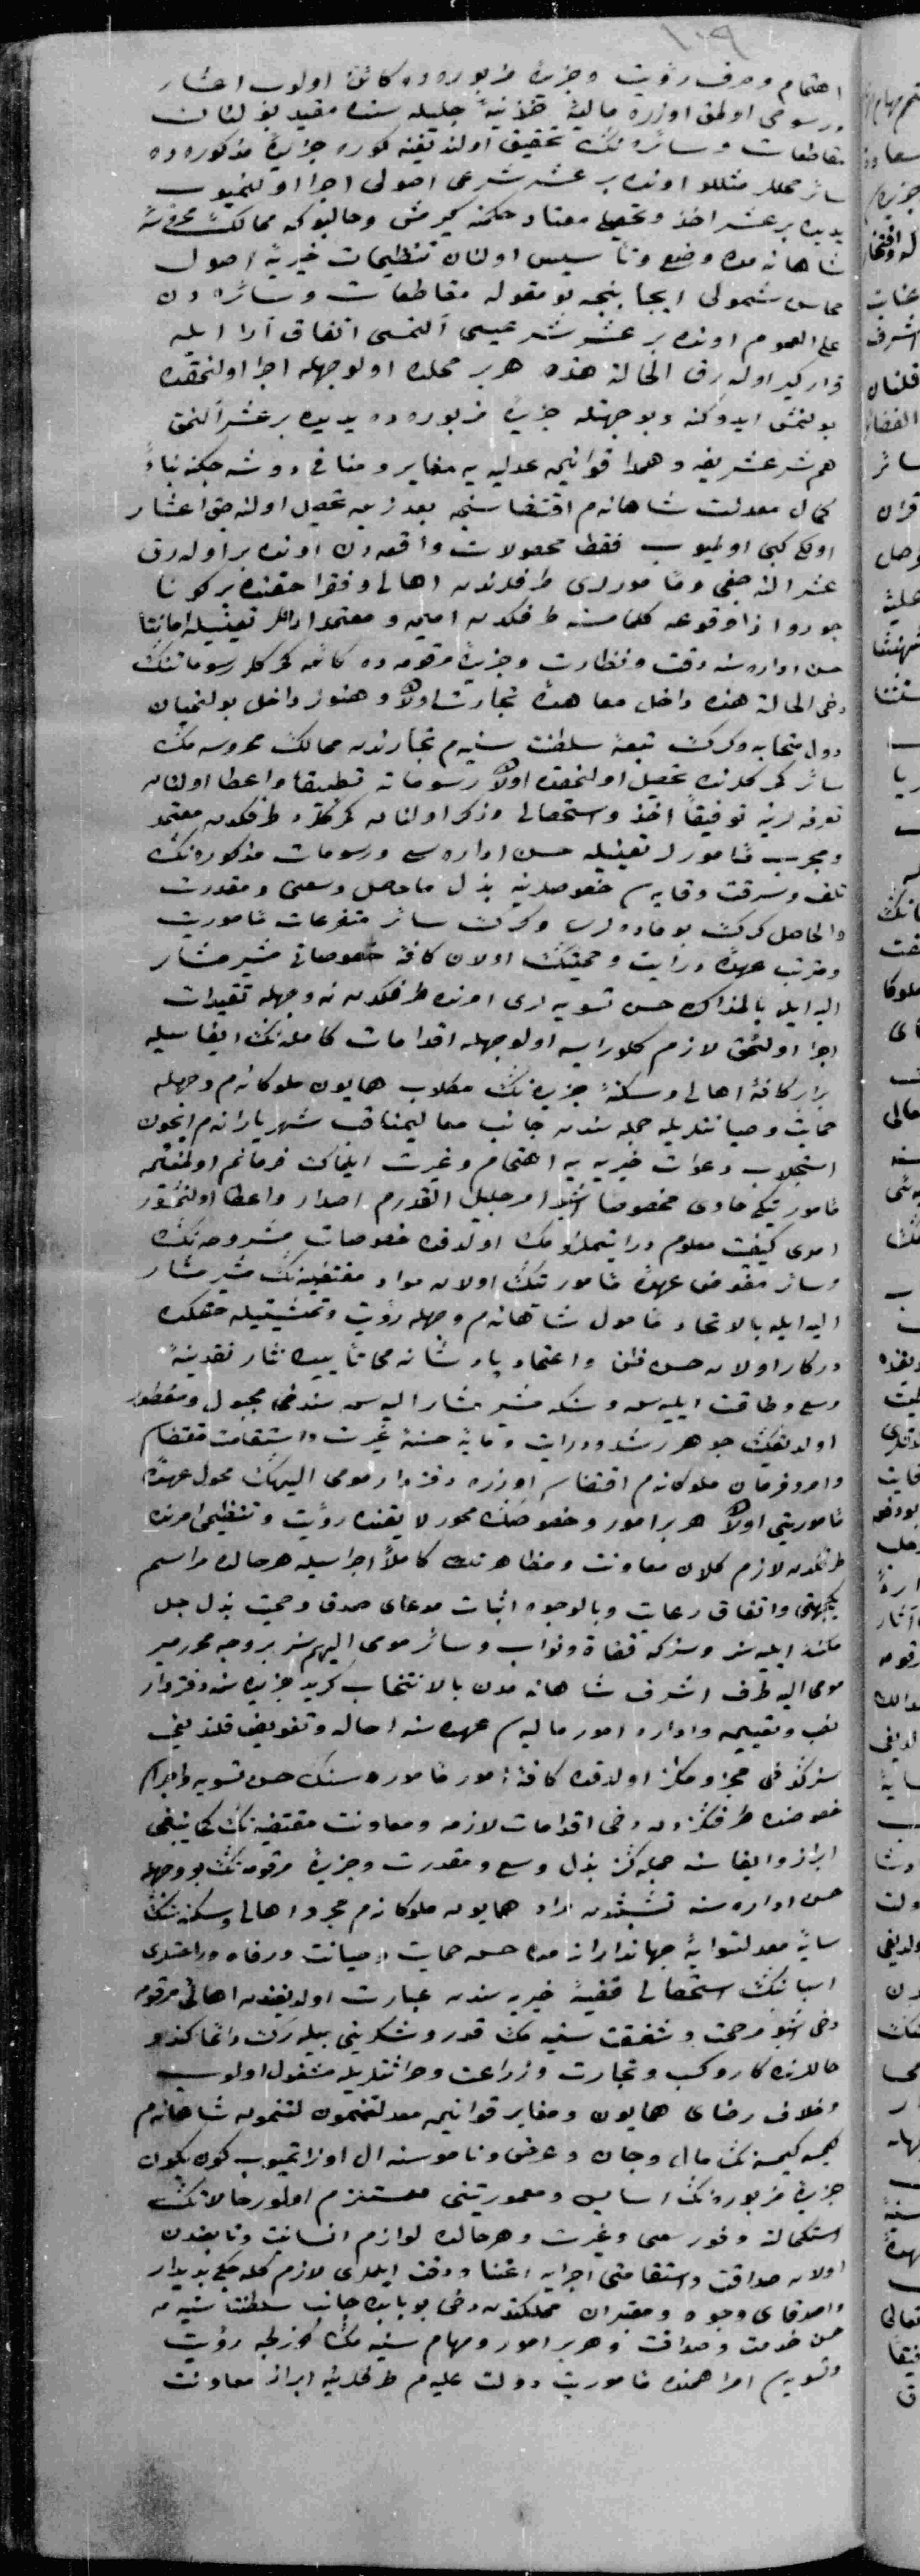 ١٠٩
اهتمام و صرف رؤيت و جزيرۀ مزبوره ده كائن اولوب اعشار
و رسومى اولمق اوزره ماليه خزينۀ جليله سنده مقيد بولنان
مقاطعات و سائره نك تحقيق اولنديغنه كوره جزيرۀ مذكوره ده
سائر محللر مثللو اونده بر عشر شرعى اصولى اجرا اولنميوب
يديده بر عشر اخذ و تحصيل معتاد حكمنه كيرمش و حالبوكه ممالك محروسۀ
شاهانه مده وضع و تأسيس اولنان تنظيمات خيريه اصول
محاسن شمولى ايجابنجه بو مقوله مقاطعات و سائره دن
على العموم اونده بر عشر شرعيسى آلنمسى اتفاق آرا ايله
قرار كير اوله رق الحالة هذه هر بر محلده اولوجهله اجرا اولنمقده
بولنمش ايدوكنه و بو جهتله جزيرۀ مزبوره ده يديده بر عشر آلنمق
هم شرع شريفه و همده قوانين عدليه يه مغاير و منافى دوشه جكنه بناءً
كمال معدلت شاهانه م اقتضاسنجه بعد ازين تحصيل اولنه جق اعشار
اولكى كبى اولميوب فقط محصولات واقعه دن اونده بر اوله رق
عشر النه جغى و مأمورلرى طرفلرندن اهالى و فقرا حقنده بر كونا
جور و اذا وقوعه كلمامسنه طرفكدن امين و معتمد ادملر تعيينيله امانتاً
حسن اداره سنه دقت و نظارت و جزيرۀ مرقومه ده كائنه كمركلر رسوماتنك
دخى الحالة هذه داخل معاهدۀ تجارت اولان و هنوز داخل بولنميان
دول متحابه و كرك تبعۀ سلطنت سنيه م تجارندن ممالك محروسه مك
سائر كمركلرنده تحصيل اولنمقده اولان رسوماته تطبيقاً و اعطا اولنان
تعرفه لرينه توفيقاً اخذ و استحصالى و ذكر اولنان كمركلره طرفكدن معتمد
و مجرب مأمورلر تعيينيله حسن اداره سى و رسومات مذكوره نك
تلف و سرقت وقايه سى خصوصلرينه بذل ماحصل و سعى و مقدرت
والحاصل كرك بو ماده لرى و كرك سائر متفرعات مأموريت
و مترتب عهدۀ درايت و حميتك اولان كافۀ خصوصاتى مشير مشار
اليه ايله بالمذاكره حسن تسويه لرى امرنده طرفكدن نه وجهله تقيدات
اجرا اولنمق لازم كلورايسه اولوجهله اقدامات كامله نك ايفاسيله
برابر كافۀ اهالى و سكنۀ جزيره نك مطلوب همايون ملوكانه م وجهله
حمايت و صيانتلريله جمله سندن جانب معاليمناقب شهريارانه م ايچون
استجلاب دعوات خيريه يه اهتمام و غيرت ايلمك فرمانم اولمغله
مأموريتكى حاوى مخصوصاً اشبو امر جليل القدرم اصدار و اعطا اولنمشدر
امدى كيفيت معلوم درايتملزومك اولدقده خصوصات مشروحه نك
و سائر مفوض عهدۀ مأموريتك اولان مواد مقتضيه نك مشير مشار
اليه ايله بالاتحاد مأمول شاهانه م وجهله رؤيت و تمشيتيله حقكده
دركار اولان حسن ظن و اعتماد پادشاهانه مى تأييده نثار نقدينۀ
وسع و طاقت ايليه سن و سنكه مشير مشار اليه سن سندخى مجبول و مفطور
اولديغك جوهر رشد و درايت و مايۀ حسنۀ غيرت و استقامت مقتضاسى
و امر و فرمان ملوكانه م اقتضاسى اوزره دفتردار مومى اليهك محول عهدۀ
مأموريتى اولان هر بر امور و خصوصك محور لايقنده رؤيت و تنظيمى امرنده
طرفكدن لازم كلان معاونت و مظاهرتك كاملاً اجراسيله هر حالده مراسم
يكجهتى و اتفاقه رعايت و بالوجوه اثبات مدعاى صدق و حميته بذل جل
مكنت ايليه سن و سزكه قضاة و نواب و سائر مومى اليهم سز بر وجه محرر مير
مومى اليه طرف اشرف شاهانه مدن بالانتخاب كريد جزيره سنه دفتردار
نصب و تعيين و اداره امور ماليه سى عهده سنه احاله و تفويض قلنديغى
سزك دخى مجزوم كز اولدقده كافۀ امور مأموره سنك حسن تسويه و اجراسى
خصوصنده طرفكزدن دخى اقدامات لازمه و معاونت مقتضيه نك كما ينبغى
ابراز و ايفاسنه جمله كز بذل وسع و مقدرت و جزيرۀ مرقومه نك بو وجهله
حسن اداره سنه تشبثدن مراد همايون ملوكانه م مجرد اهالى و سكنه سنك
سايۀ معدلتوايۀ جهاندارانه مده حسن حمايت و صيانت و رفاه و راحتلرى
اسبابنك استحصالى قضيۀ خيريه سندن عبارت اولديغندن اهالى مرقومه
دخى اشبو مرحمت و شفقت سنيه مك قدر و شكرينى بيله رك دائما كندو
حاللرنده كار و كسب و تجارت و زراعت و حراثتلريله مشغول اولوب
و خلاف رضاى همايون و مغاير قوانين معدلتمضمون شاهانه م
كيمسه كيمسه نك مال و جان و عرض و ناموسنه ال اوزاتميوب كون بكون
جزيرۀ مزبوره نك اسايش و معموريتنى مستلزم اولور حالاتك
استكمالنه وفور سعى و غيرت و هر حالده لوازم انسانيت و تابعيتدن
اولان صداقت و استقامتى اجرايه اعتنا و دقت ايلملرى لازم كله جكى بديدار
و اصدقاى وجوه و معتبران مملكتدن دخى بو بابده جانب سلطنت سنيه مه
حسن خدمت و صداقت و هر بر امور و مهام سنيه مك كوزلجه رؤيت
و تسويه سى امر اهمنده مأموريت دولت عليه م طرفلرينه ابراز معاونت